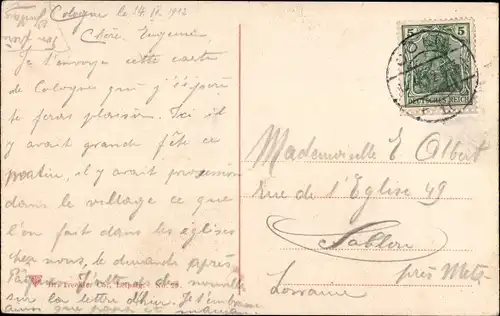 Cologne le 14 IV. 1912
Chère Eugénie,
Je t'envoye cette carte
de Cologne que j'espère
te feras plaisir. Ici il
y avait grande fête ce
matin, il y avait procession
dans le village ce que
l'on fait dans les églises
chez nous, le dimanche après
Pâques. J'attends des nouvelles
sur la lettre d'hier. Je t'embrasse
ainsi que papa et maman.
5 5
DEUTSCHES REICH
Mademoiselle E. Albert
Rue de l'Eglise 49
Sablon
près Metz
Lorraine